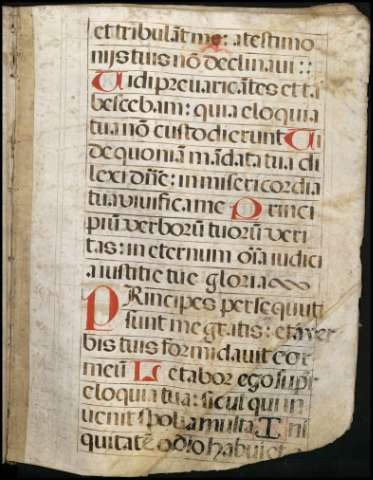 et tribulāt me: a testimo
nijs tuis nō declinaui ::
Uidi preuaricātes et ta
bescebam: quia eloquia
tua nō custodierunt Ui
de quoniā mādata tua di
lexi dñe: in misericordia
tua viuifica me Princi
piū verborū tuorū veri
tas: in eternum oīa iudici
a iustitie tue gloria
PRincipes persequuti
sunt me gratis: et a ver
bis tuis formidauit cor
meū Letabor ego sup
eloquia tua: sicut qui in
uenit spolia multa Ini
quitatē odio habui et